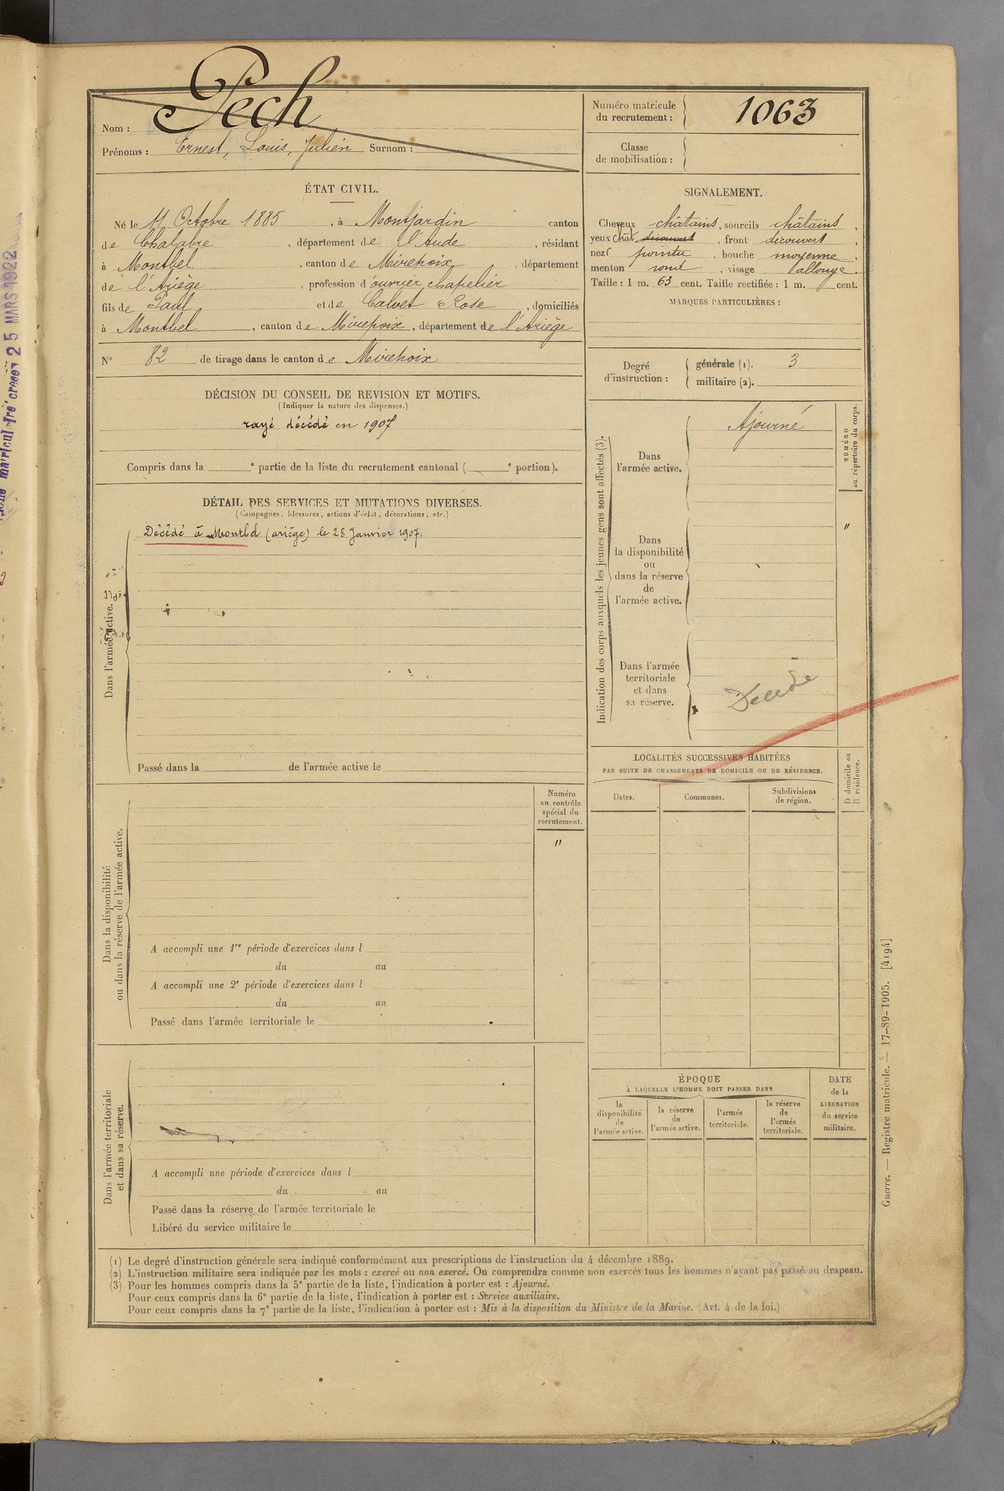 Pech
Nom :
Prénoms : Ernest, Louis, Julien Surnom :
Numéro matricule du recrutement : 1063
Classe de mobilisation :
ÉTAT CIVIL.
Né le Octobre 1885, à Montjardin canton
de Chalabre, département de l'Aude, résidant
à Montbel, canton de Mirepoix, département
de l'Ariège, profession d'ouvrier chapelier
fils de Paul et de Calvet Rose, domiciliés
à Montbel, canton de Mirepoix, département de l'Ariège
N° 82 de tirage dans le canton de Mirepoix
SIGNALEMENT.
Cheveux châtains, sourcils châtains,
yeux chât. découvert, front découvert,
nez pointu, bouche moyenne,
menton rond, visage allongé.
Taille : 1 m. 63 cent. Taille rectifiée : 1 m. cent.
MARQUES PARTICULIÈRES :
Degré d'instruction :
générale (1). 3
militaire (2).
DÉCISION DU CONSEIL DE REVISION ET MOTIFS.
(Indiquer la nature des dispenses.)
rayé décédé en 1907
Compris dans la e partie de la liste du recrutement cantonal ( e portion).
DÉTAIL DES SERVICES ET MUTATIONS DIVERSES.
(Campagnes, blessures, actions d'éclat, décorations, etc.)
Dans l'armée active.
Décédé à Montbel (ariège) le 28 Janvier 1907.
Passé dans la de l'armée active le
Indication des corps auxquels les jeunes gens sont affectés (3).
Dans
l'armée active.
Ajourné
NUMÉRO
au répertoire du corps.
"
Dans
la disponibilité
ou
dans la réserve
de
l'armée active.
Dans l'armée
territoriale
et dans
sa réserve.
Décédé
LOCALITÉS SUCCESSIVES HABITÉES
PAR SUITE DE CHANGEMENTS DE DOMICILE OU DE RÉSIDENCE.
Dates.
Communes.
Subdivisions
de région.
D domicile ou
R résidence.
Dans la disponibilité
ou dans la réserve de l'armée active.
Numéro
au contrôle
spécial du
recrutement.
"
A accompli une 1re période d'exercices dans l
du au
A accompli une 2e période d'exercices dans l
du au
Passé dans l'armée territoriale le
Dans l'armée territoriale
et dans sa réserve.
A accompli une période d'exercices dans l
du au
Passé dans la réserve de l'armée territoriale le
Libéré du service militaire le
ÉPOQUE
À LAQUELLE L'HOMME DOIT PASSER DANS
la
disponibilité
de
l'armée active.
la réserve
de
l'armée active.
l'armée
territoriale.
la réserve
de
l'armée
territoriale.
DATE
de la
LIBÉRATION
du service
militaire.
(1) Le degré d'instruction générale sera indiqué conformément aux prescriptions de l'instruction du 4 décembre 1889.
(2) L'instruction militaire sera indiquée par les mots : exercé ou non exercé. On comprendra comme non exercés tous les hommes n'ayant pas passé au drapeau.
(3) Pour les hommes compris dans la 5e partie de la liste, l'indication à porter est : Ajourné.
Pour ceux compris dans la 6e partie de la liste, l'indication à porter est : Service auxiliaire.
Pour ceux compris dans la 7e partie de la liste, l'indication à porter est : Mis à la disposition du Ministre de la Marine. (Art. 4 de la loi.)
Guerre. — Registre matricule. — 17-89-1905. [4194]
25 MARS 1922